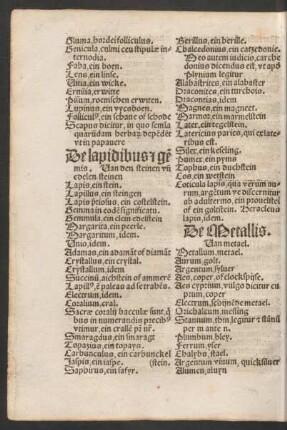 Gluma, hordei folliculus.
Genicula, culmi ceu stipulæ in
ternodia.
Faba, ein boen.
Lens, ein linse.
Vicia, ein wicke.
Ervilia, erwitte
Pisum, roemschen erwiten.
Lupinus, ein vycsboen.
Folliculus, ein schane of schode
Scapus dicitur, in quo semia
quarundam herbarum dependet
vt in papauere
De lapidibus et gē
mis. Van den steinen vn
edelen steinen
Lapis, ein stein.
Lapillus, ein steingen
Lapis preciosus, ein costelstein.
Gemma in eodē significatu.
Gemmula, ein clein edelstein
Margarita, ein peerle.
Margaritum, idem.
Vnio, idem.
Adamas, ein adamāt of diamāt
Crystallus, ein crystal.
Crystallum, idem
Succinū, aichstein of ammere
Electrum, idem.
Coralium, coral.
Sacræ coralij bacculæ sunt, quibus
bus in numerandis precibus
vtimur, ein
Smaragdus, ein smaragt
Topazius, ein topayn.
Carbunculus, ein carbunckel
Iaspis, ein iaspe. (stein.
Sapbirus, ein safyr.
Berillus, ein berille.
Chalcedonius, ein catzedonie.
Meo autem iudicio, carche
donius dicendus est, vt apd
Plynium legitur
Alabastrites, ein alabaster
Draconites, ein
Draconcias, idem
Magnes, ein magneet.
Marmor, ein marmelstein
Later, ein tegelstein.
Latericius paries, qui ex lateribus
bus est.
Silex, ein keseling.
Pumex, ein pyms
Tophus, ein duchstein
Cos, ein wetstein.
Coticula lapis, qua verum aurum,
rum, argētum vt discernitur
ab adulterino, ein prouestel
of ein golstein. Heraclius
lapis, idem.
De Metallis.
Van metael.
Metallum, metael.
Aurum, golt.
Argentum, syluer
Aes, coper, of clockspijse.
Aes cyprium, vulgo dicitur cu
prum, coper
Electrum,
Orichalcum, messing
Stannum, thin, legitur et stānū
per m ante n.
Plumbum, bley.
Ferrum, yser
Chalybs, stael.
Argentum viuum, quicksiluer
Alumen, aluyn